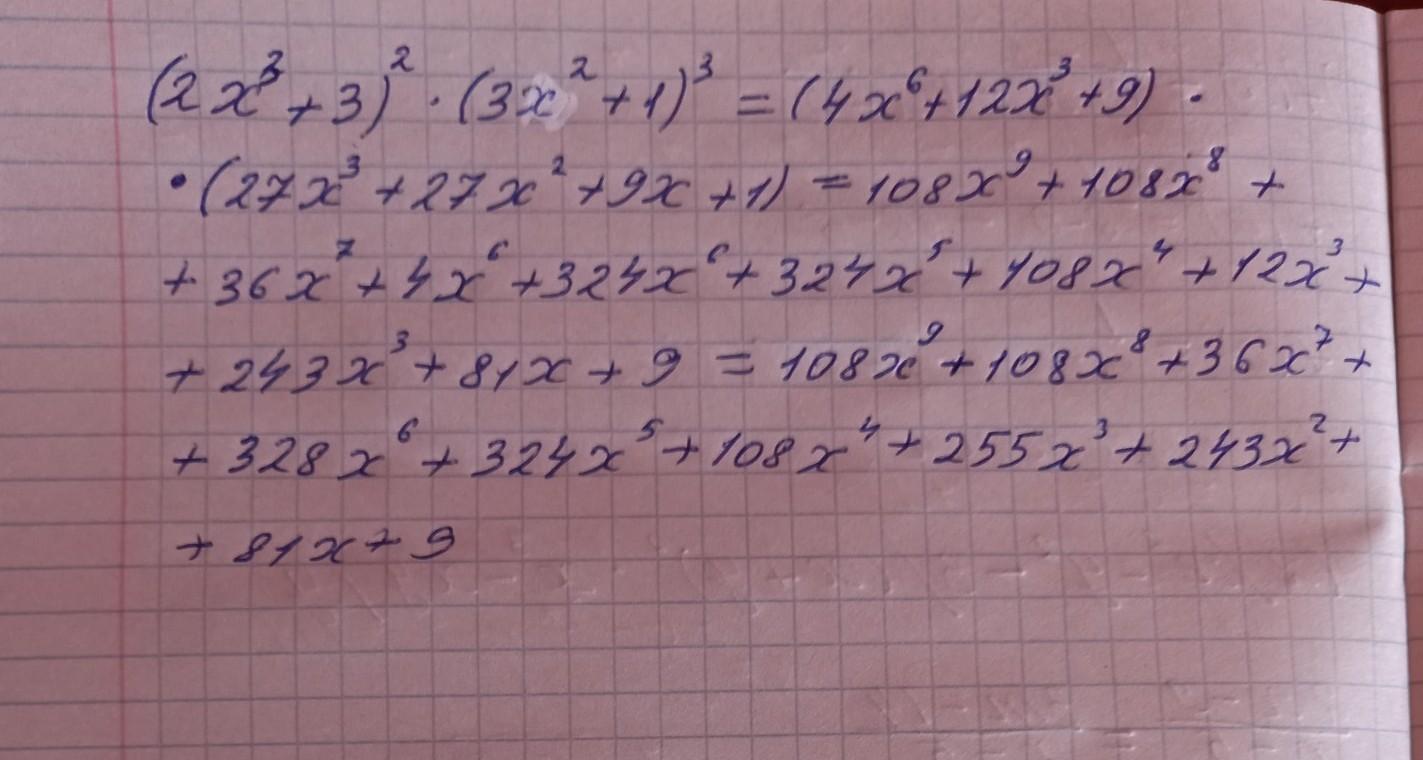 (2x³+3)²·(3x²+1)³=(4x⁶+12x³+9)·
·(27x³+27x²+9x+1)=108x⁹+108x⁸+
+36x⁷+4x⁶+324x⁶+324x⁵+108x⁴+12x³+
+243x³+81x+9=108x⁹+108x⁸+36x⁷+
+328x⁶+324x⁵+108x⁴+255x³+243x²+
+81x+9